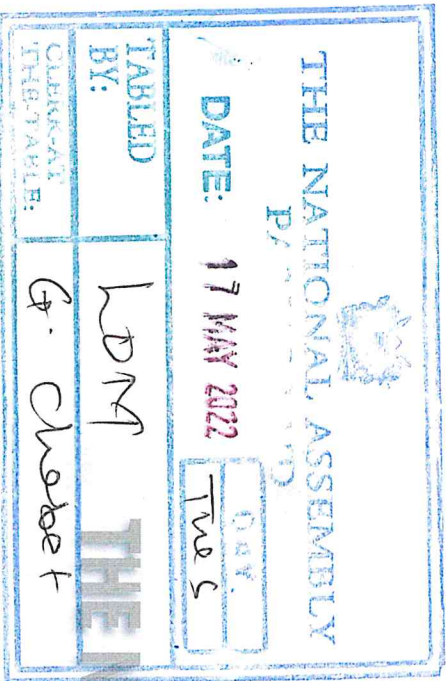 THE NATIONAL ASSEMBLY
DATE: 17 MAY 2022
DAY.
Tues
TABLED
BY:
LDM
CLERK-AT
THE-TABLE:
G. Chebet
THE